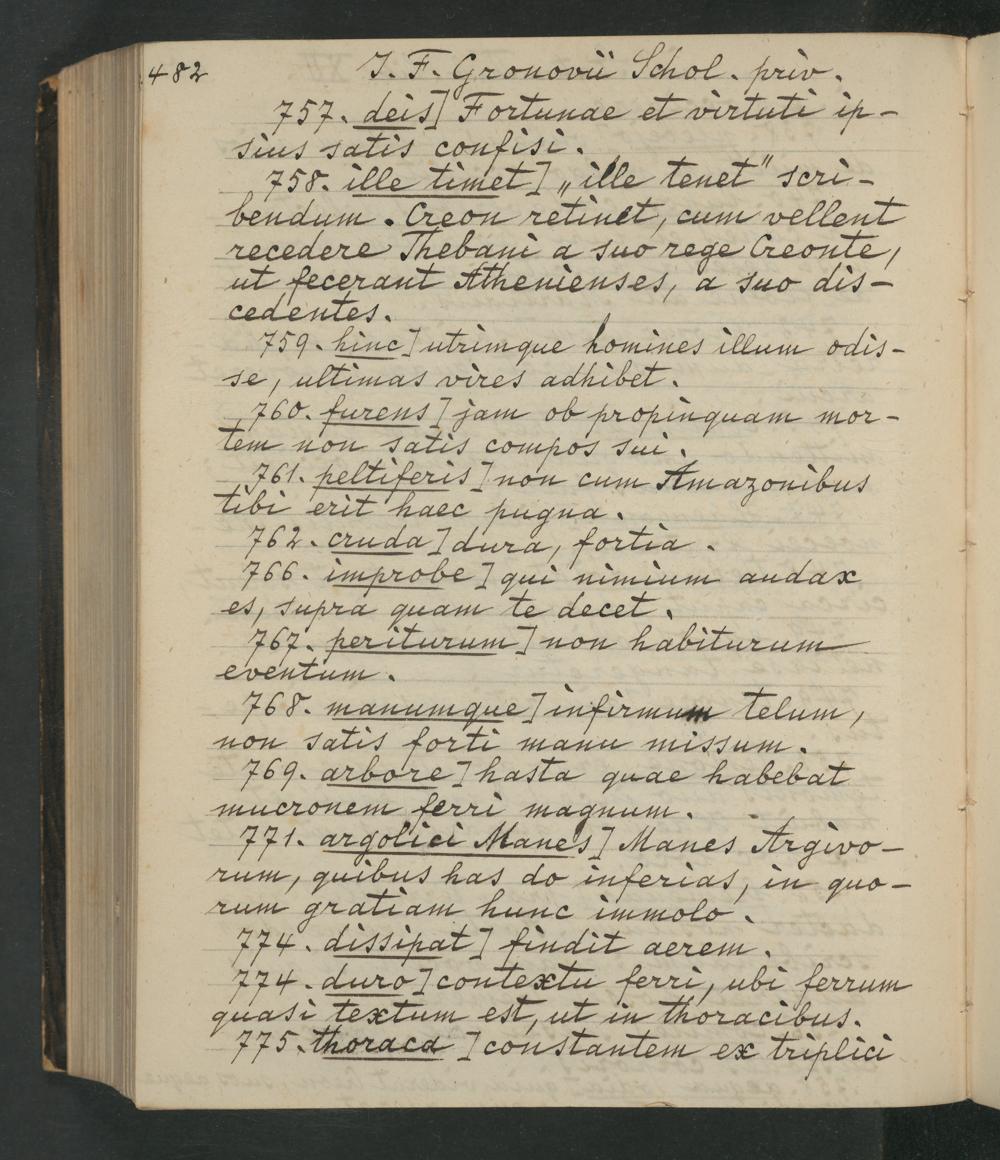 482
J. F. Gronovii Schol. priv.
757. deis] Fortunae et virtuti ip-
sius satis confisi.
758. ille timet] „ille tenet" scri-
bendum. Creon retinet, cum vellent
recedere Thebani a suo rege Creonte,
ut fecerant Athenienses, a suo dis-
cedentes.
759. hinc] utrimque homines illum odis-
se, ultimas vires adhibet.
760. furens] jam ob propinquam mor-
tem non satis compos sui.
761. peltiferis] non cum Amazonibus
tibi erit haec pugna.
762. cruda] dura, fortia.
766. improbe] qui nimium audax
es, supra quam te decet.
767. periturum] non habiturum
eventum.
768. manumque] infirmum telum,
non satis forti manu missum.
769. arbore] hasta quae habebat
mucronem ferri magnum.
771. argolici Manes] Manes Argivo-
rum, quibus has do inferias, in quo-
rum gratiam hunc immolo.
774. dissipat] findit aerem.
774. duro] contextu ferri, ubi ferrum
quasi textum est, ut in thoracibus.
775. thoraca] constantem ex triplici